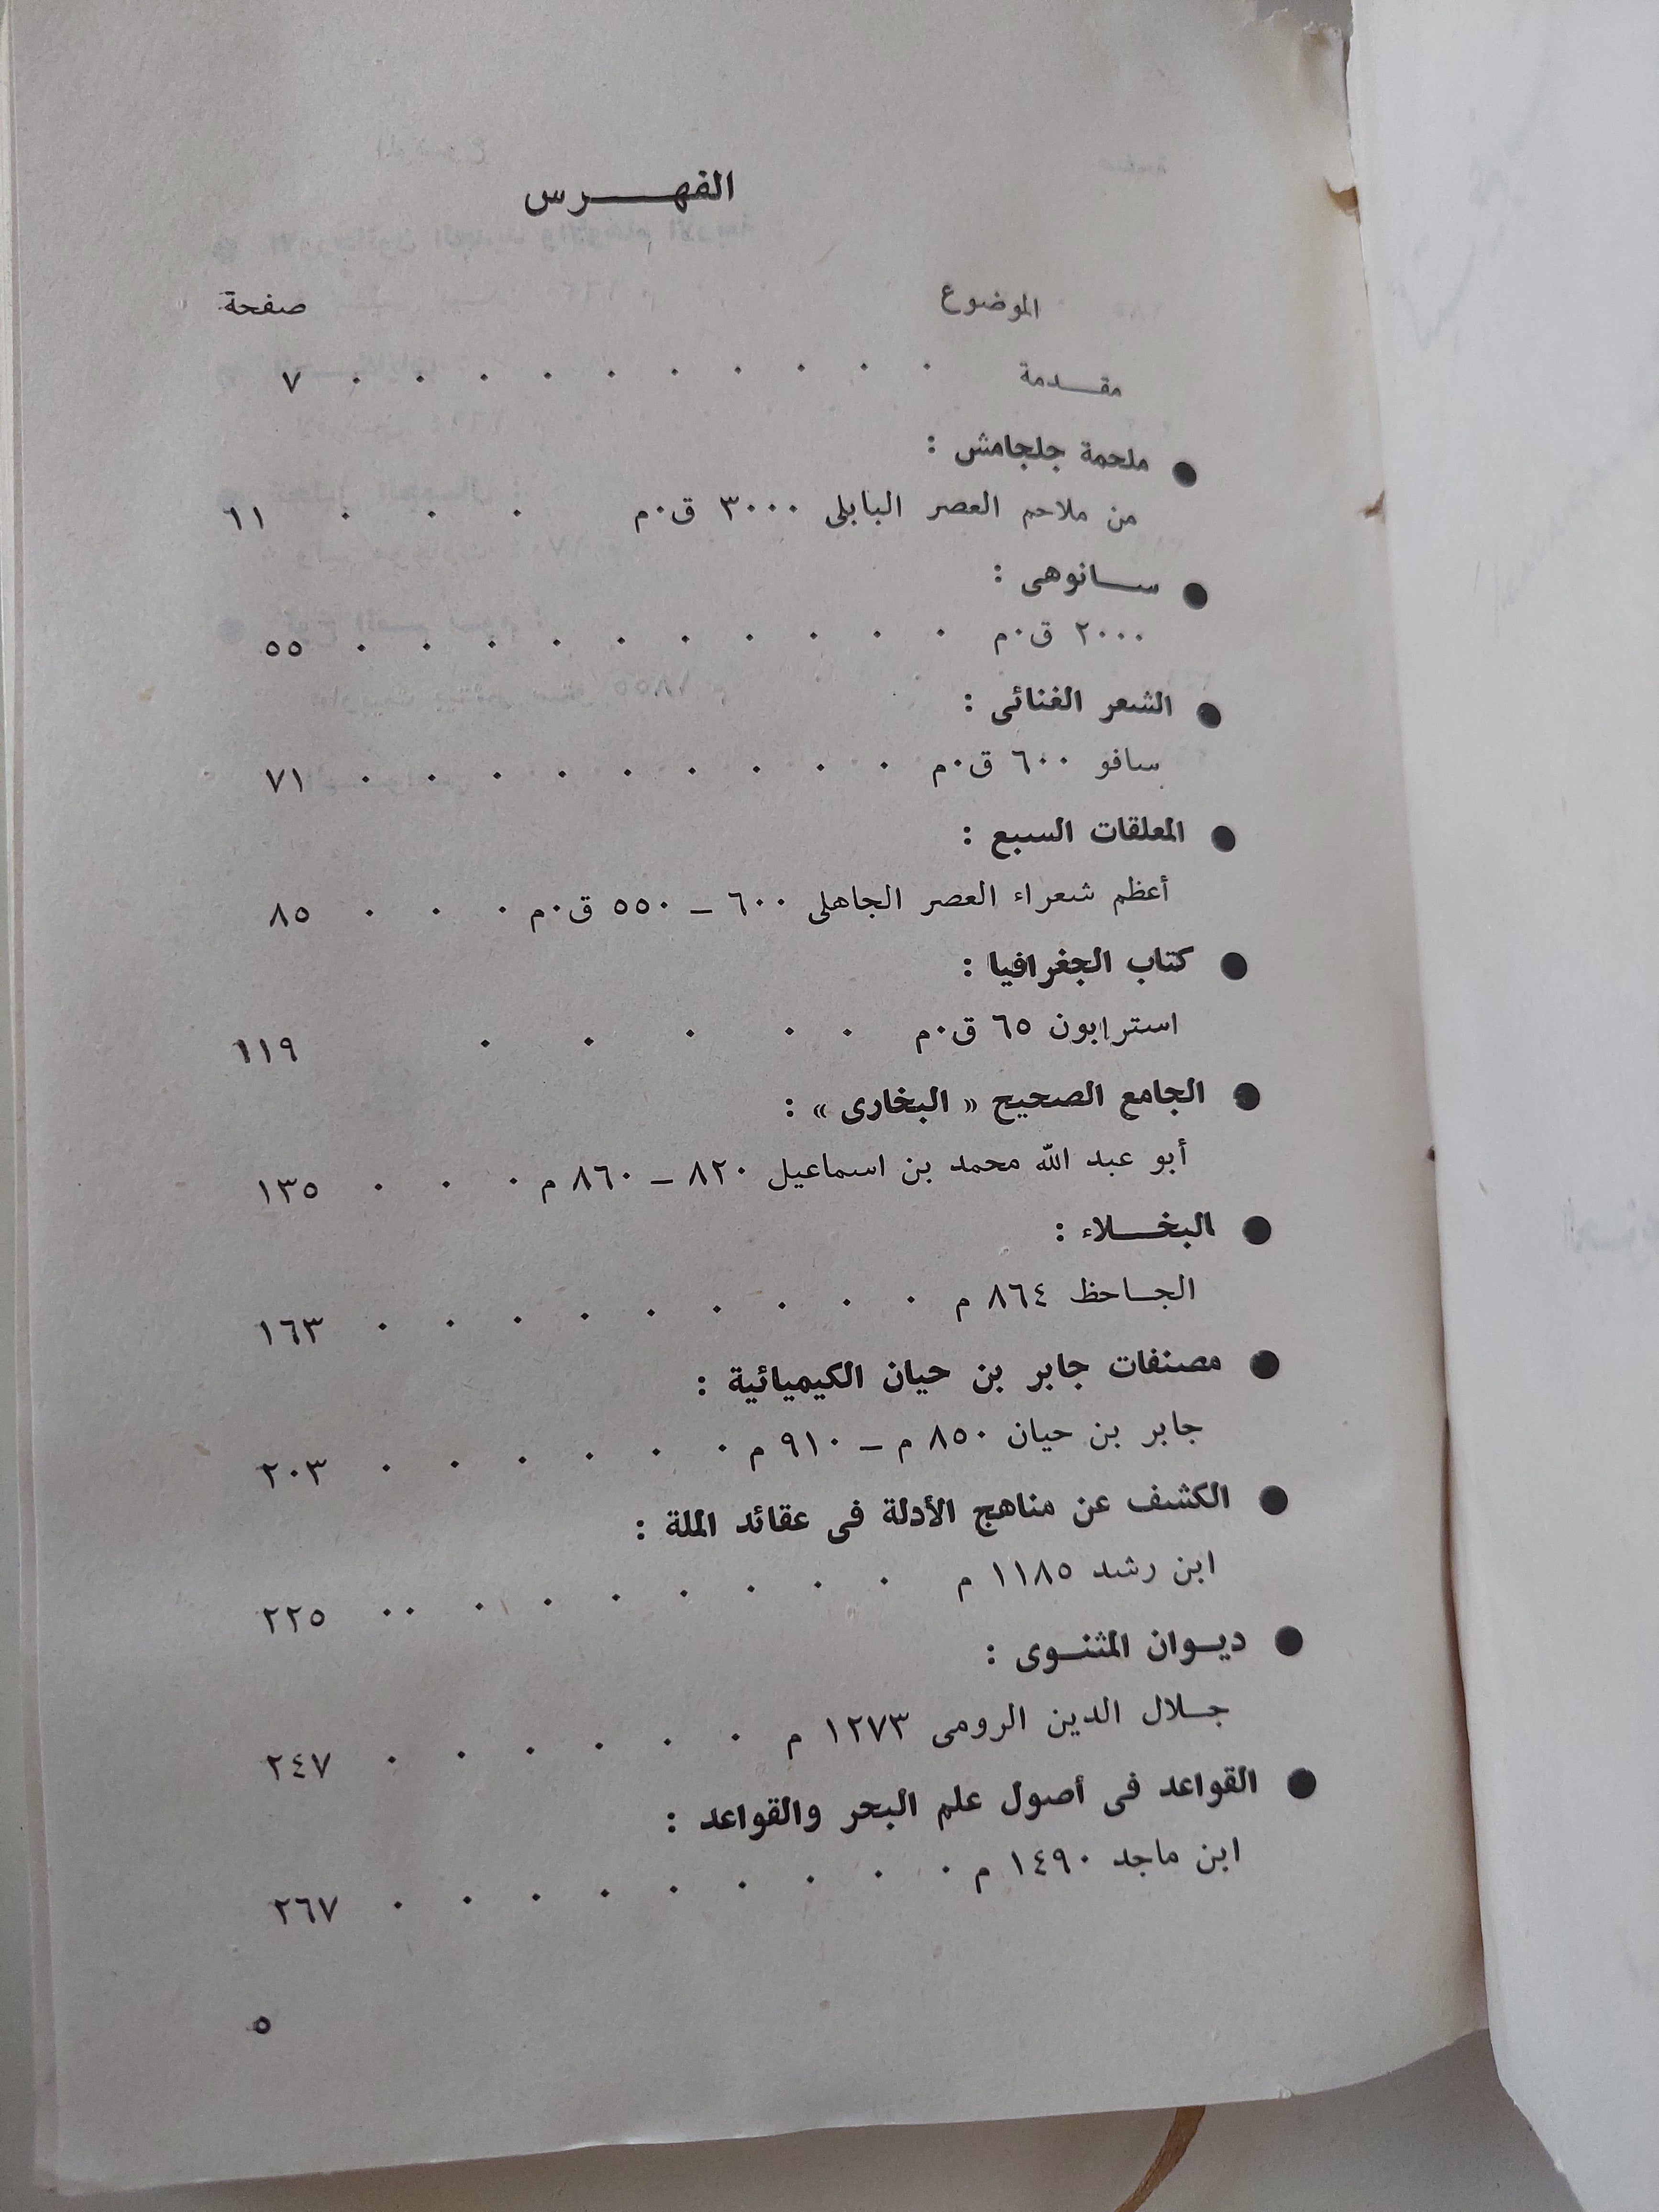 الفهــــرس
الموضوع صفحة
مقــدمة ٧
● ملحمة جلجامش :
من ملاحم العصر البابلى ٣٠٠٠ ق.م ١١
● ســانوهى :
٢٠٠٠ ق.م ٥٥
● الشعر الغنائى :
سافو ٦٠٠ ق.م ٧١
● المعلقات السبع :
أعظم شعراء العصر الجاهلى ٦٠٠ ــ ٥٥٠ ق.م ٨٥
● كتاب الجغرافيا :
استرابون ٦٥ ق.م ١١٩
● الجامع الصحيح « البخارى » :
أبو عبد الله محمد بن اسماعيل ٨٢٠ ــ ٨٦٠ م ١٣٥
● البخــلاء :
الجـاحظ ٨٦٤ م ١٦٣
● مصنفات جابر بن حيان الكيميائية :
جابر بن حيان ٨٥٠ م ــ ٩١٠ م ٢٠٣
● الكشف عن مناهج الأدلة فى عقائد الملة :
ابن رشد ١١٨٥ م ٢٢٥
● ديـوان المثنـوى :
جـلال الدين الرومى ١٢٧٣ م ٢٤٧
● القواعد فى أصول علم البحر والقواعد :
ابن ماجد ١٤٩٠ م ٢٦٧
٥